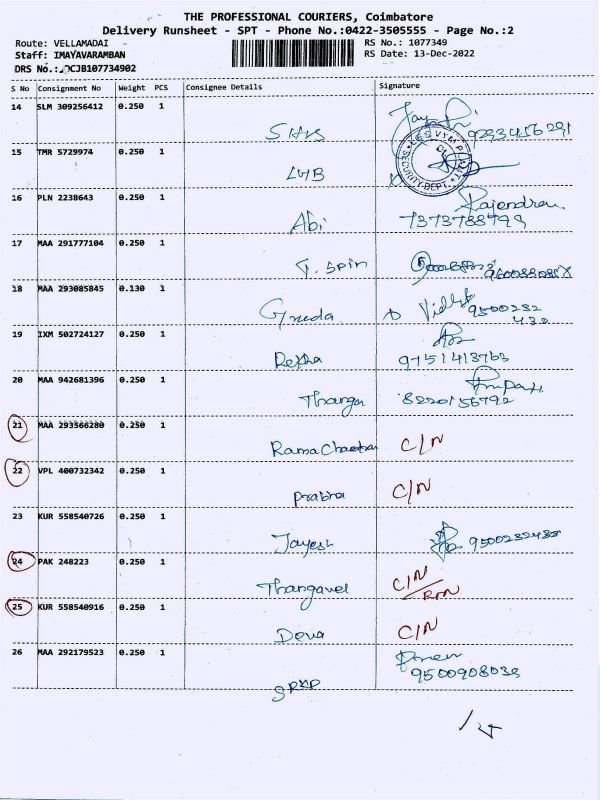 THE PROFESSIONAL COURIERS, Coimbatore
Delivery Runsheet - SPT - Phone No.:0422-3505555 - Page No.:2
Route: VELLAMADAI
RS No.: 1077349
Staff: IMAYAVARAMBAN
RS Date: 13-Dec-2022
DRS No.: CJB107734902
S No Consignment No Weight PCS Consignee Details Signature
14 SLM 309256412 0.250 1
9233456291
15 TMR 5729974 0.250 1
LMB
SECURITY DEPT.
16 PLN 2238643 0.250 1
Abi Rajendran
7373788799
17 MAA 291777104 0.250 1
T. Spin
18 MAA 293085845 0.130 1
9500232
432
19 IXM 502724127 0.250 1
Rekha 9751413763
20 MAA 942681396 0.250 1
Thanga 8220156792
21 MAA 293566280 0.250 1
C/N
22 VPL 400732342 0.250 1
Prabha C/N
23 KUR 558540726 0.250 1
Jayesh
24 PAK 248223 0.250 1
Thangavel C/N
25 KUR 558540916 0.250 1
Deva C/N
26 MAA 292179523 0.250 1
9500908039
SRKP